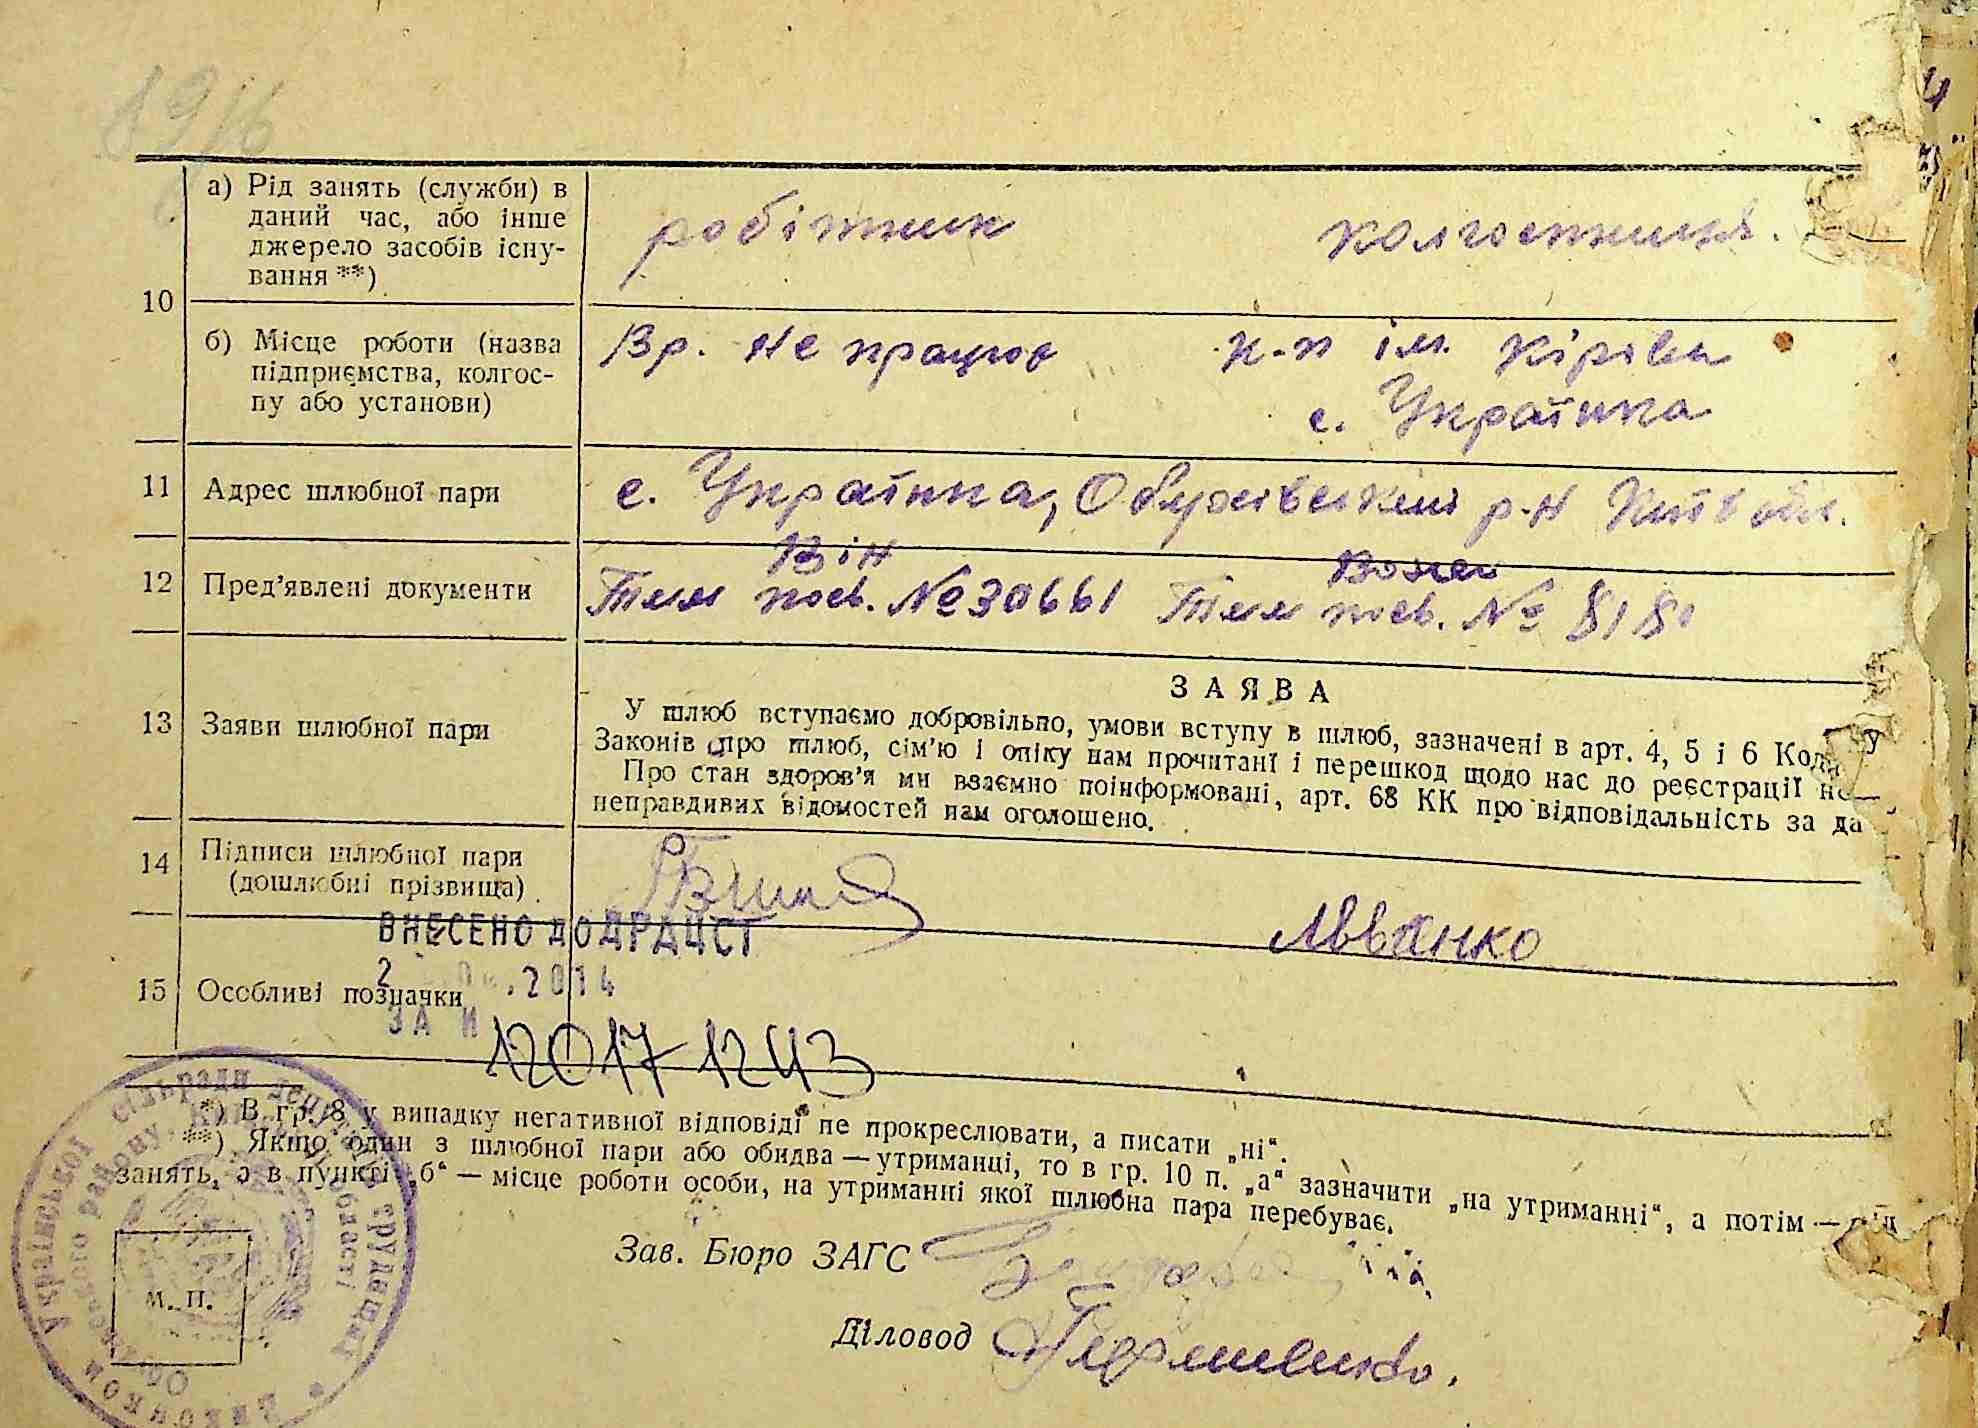 а) Рід занять (служби) в
даний час, або інше
джерело засобів існу-
вання **)
робітник
колгоспниця.
10
б) Місце роботи (назва
підприємства, колгос-
пу або установи)
Вр. не працює
к-п ім. Кірова
с. Українка
11
Адрес шлюбної пари
с. Українка, Обухівський р-н Київ обл.
12
Пред'явлені документи
Він
Вона
Тим посв. № 30661
Тим посв. № 8181
13
Заяви шлюбної пари
ЗАЯВА
У шлюб вступаємо добровільно, умови вступу в шлюб, зазначені в арт. 4, 5 і 6
Законів про шлюб, сім'ю і опіку нам прочитані і перешкод щодо нас до реєстрації
Про стан здоров'я ми взаємно поінформовані, арт. 68 КК про відповідальність за
неправдивих відомостей нам оголошено.
14
Підписи шлюбної пари
(дошлюбні прізвища)
ВНЕСЕНО ДО ДРАЦСГ
2014
15
Особливі позначки
ЗА №
12017 1243
*) В гр. 8 у випадку негативної відповіді не прокреслювати, а писати „ні“.
**) Якщо один з шлюбної пари або обидва — утриманці, то в гр. 10 п. „а“ зазначити „на утриманні“, а потім — рід
занять, а в пункті „б“ — місце роботи особи, на утриманні якої шлюбна пара перебуває.
Зав. Бюро ЗАГС
Діловод
м. п.
Української сільради депутатів трудящих
області